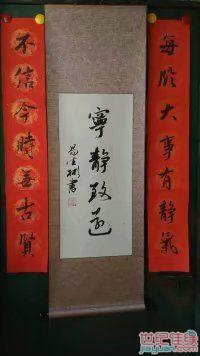 每臨大事有靜氣
寧靜致遠
不信今時無古賢
世纪佳缘